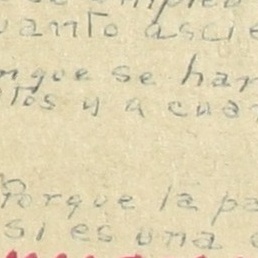 empleo
uanto ascie
nque se har
tos y a cuan
Porque la pa
si es una